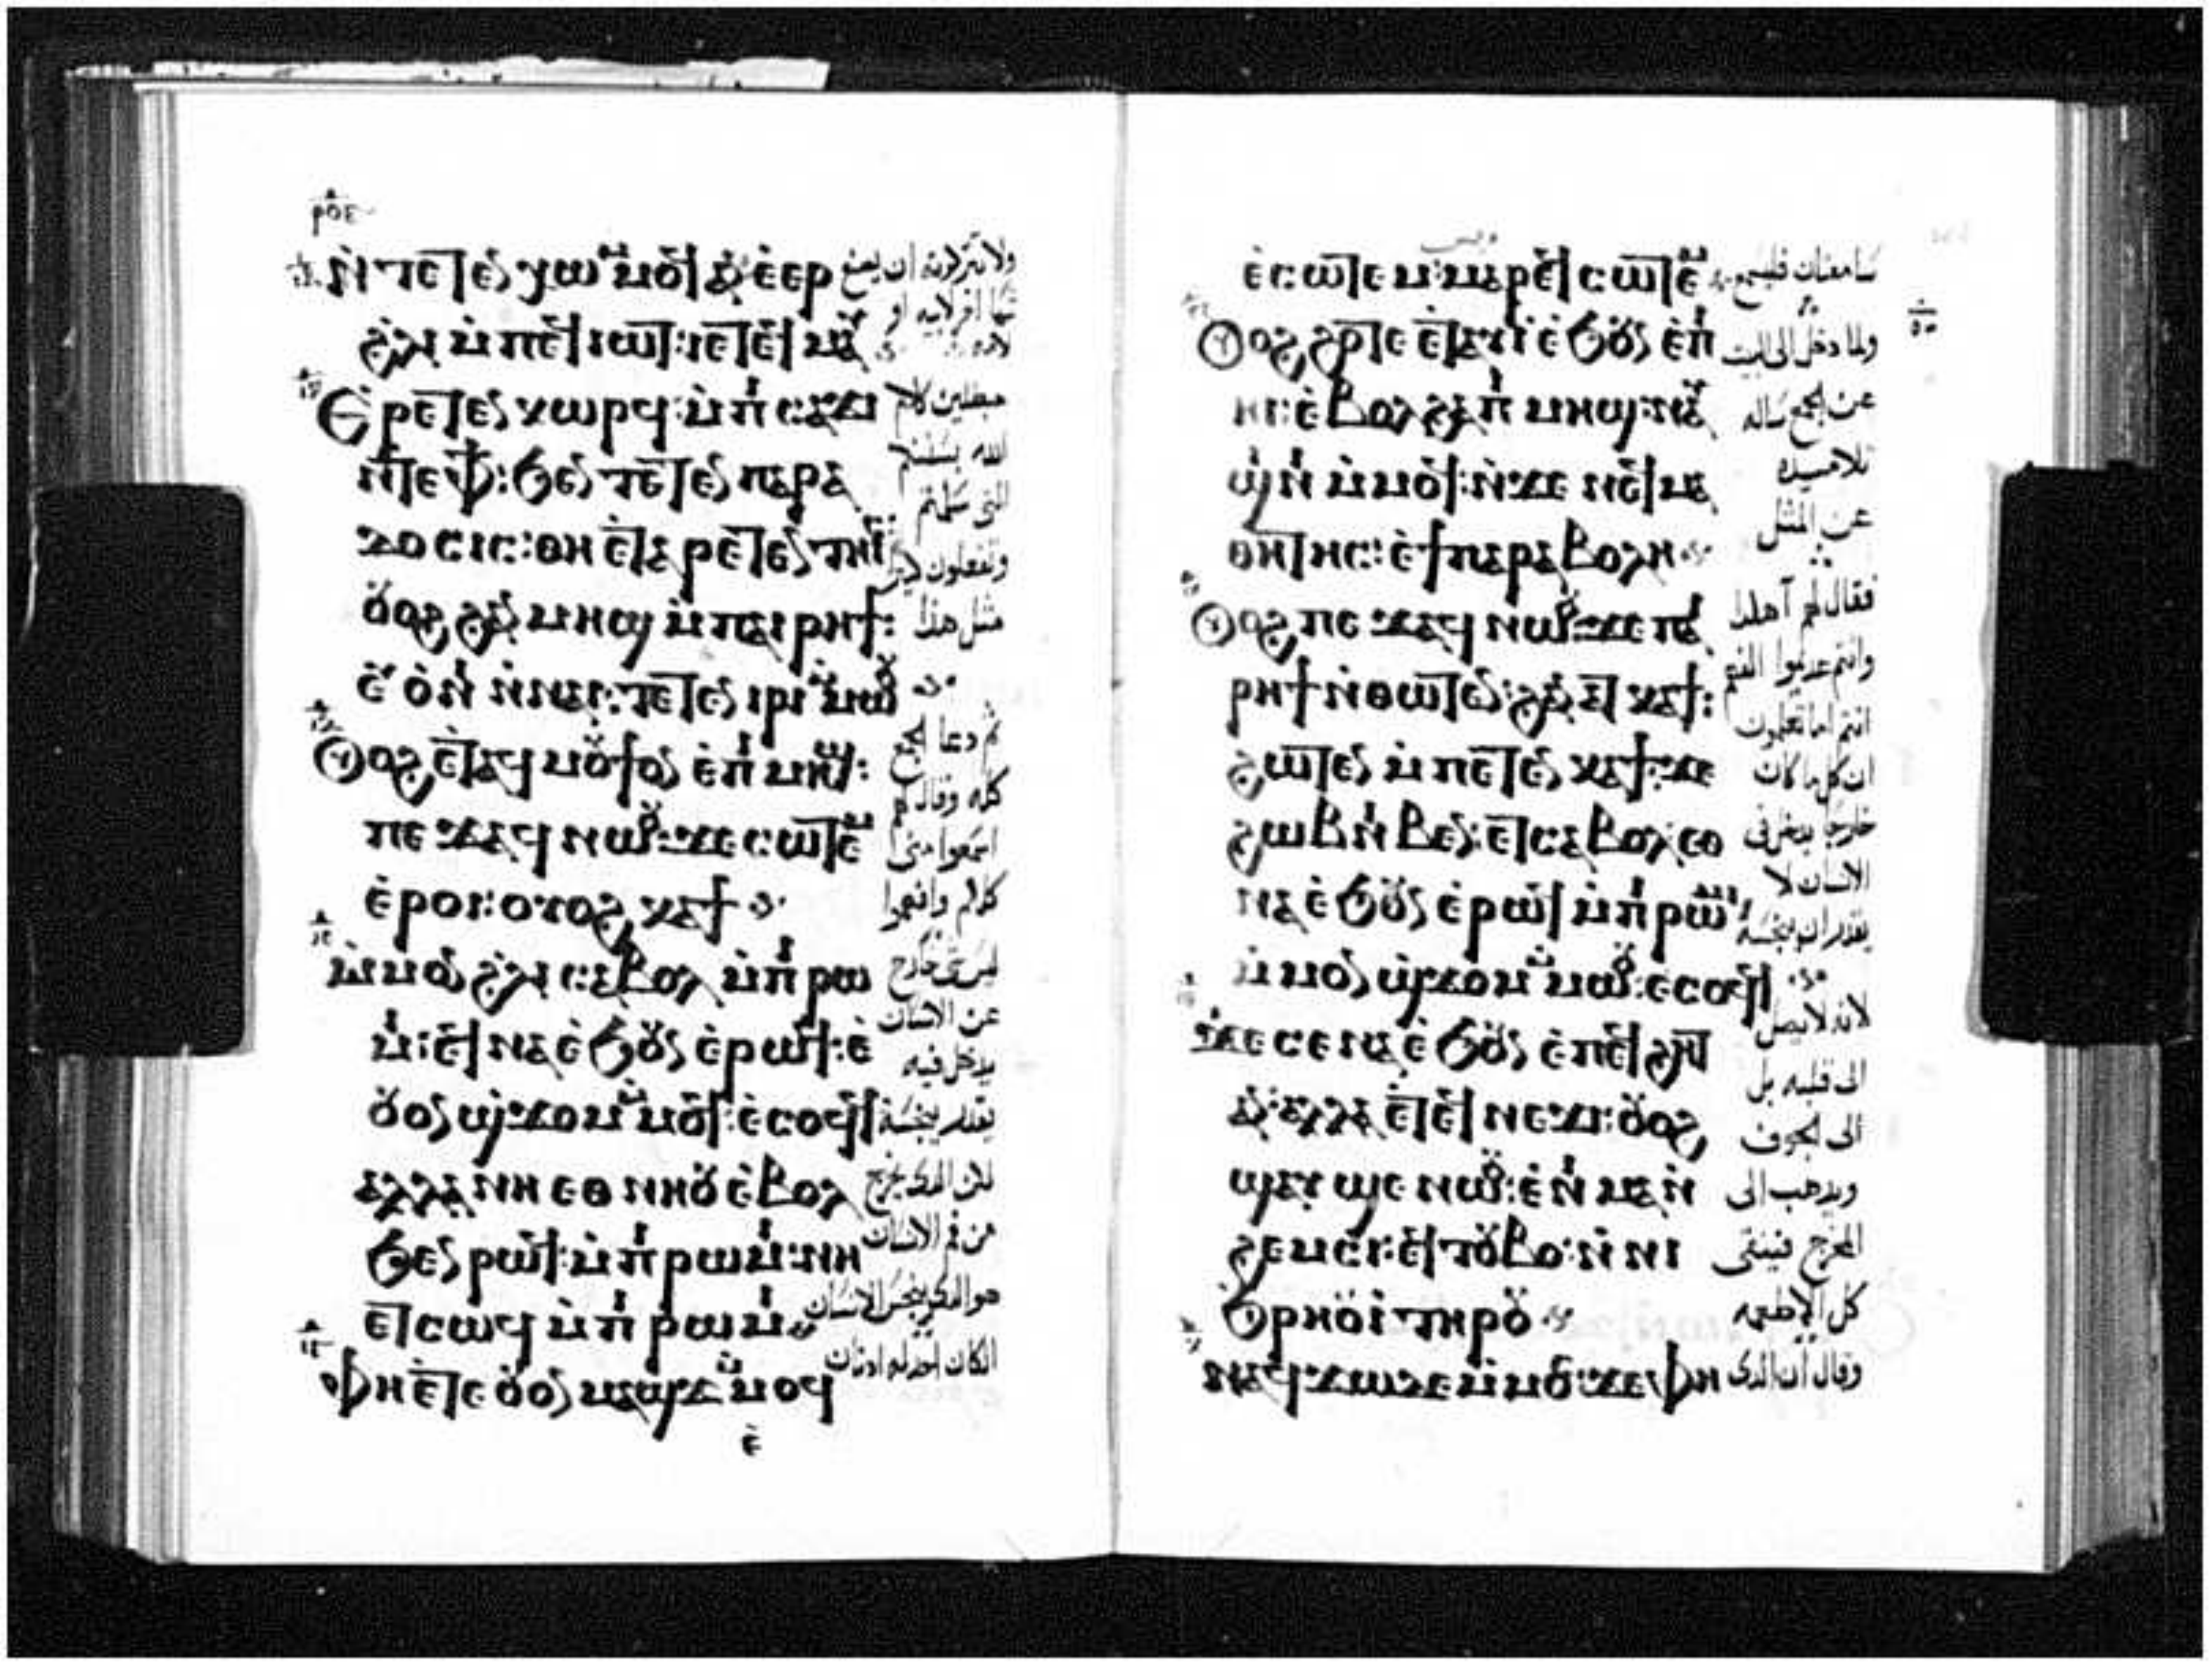 ⲣⲟⲉ
ⲛ̀ⲧⲉⲧⲉⲛⲭⲱ ⲙ̀ⲙⲟϥ ⲁⲛ ⲉ̀ⲉⲣ
ϩ̀ⲗⲓ ⲙ̀ⲡⲉϥⲓⲱⲧ: ⲓⲉ ⲧⲉϥⲙⲁⲩ
ⲉⲣⲉⲧⲉⲛⲕⲱⲣϥ: ⲙ̀ⲡⲓⲥⲁϫⲓ
ⲛ̀ⲧⲉ ⲫϯ: ϧⲉⲛ ⲧⲉⲧⲉⲛⲡⲁⲣⲁ
ⲇⲟⲥⲓⲥ: ⲑⲏ ⲉ̀ⲧⲁⲣⲉⲧⲉⲛⲧⲏⲓ
ⲟⲩⲟϩ ϩⲁⲛⲙⲏϣ ⲙ̀ⲡⲁⲓⲣⲏϯ:
ⲉⲩⲟ̀ⲛⲓ ⲛ̀ⲛⲁⲓ: ⲧⲉⲧⲉⲛⲓⲣⲓ ⲙ̀ⲙⲱⲟⲩ
ⲟⲩⲟϩ ⲉ̀ⲧⲁϥⲙⲟⲩϯ ⲟⲛ ⲉ̀ⲡⲓⲙⲏϣ:
ⲡⲉϫⲁϥ ⲛⲱⲟⲩ: ϫⲉ ⲥⲱⲧⲉⲙ
ⲉ̀ⲣⲟⲓ: ⲟⲩⲟϩ ⲕⲁϯ
ⲙ̀ⲙⲟⲛ ϩ̀ⲗⲓ ⲥⲁⲃⲟⲗ ⲙ̀ⲡⲓⲣⲱ
ⲙⲓ: ⲉϥⲛⲁ ⲉ̀ϧⲟⲩⲛ ⲉ̀ⲣⲱϥ: ⲉ̀
ⲟⲩⲟⲛ ϣ̀ϫⲟⲙ ⲙ̀ⲙⲟϥ: ⲉ̀ⲥⲟϥϥ
ⲁⲗⲗⲁ ⲛⲏ ⲉⲑⲛⲏⲟⲩ ⲉ̀ⲃⲟⲗ
ϧⲉⲛ ⲣⲱϥ: ⲙ̀ⲡⲓⲣⲱⲙⲓ: ⲛⲏ
ⲉⲧⲥⲱϥ ⲙ̀ⲡⲓⲣⲱⲙⲓ
ⲫⲏ ⲉ̀ⲧⲉ ⲟⲩⲟⲛ ⲙⲁϣϫ ⲙ̀ⲙⲟϥ
ⲉ̀
ولا تتركونه ان يصنع
شيا اخر لابيه او
لامه
مبطلين كلام
الله بسنتكم
التي سلمتم
وتفعلون كثيرا
مثل هذا
ثم دعا الجمع
كله وقال لهم
اسمعوا مني
كلكم وافهموا
ليس شي خارج
عن الانسان
يدخل فيه
يقدر ينجسه
لكن الذي يخرج
من فم الانسان
هو الذي ينجس الانسان
الكان احد له اذنان
ⲉ̀ⲥⲱⲧⲉⲙ: ⲙⲁⲣⲉϥⲥⲱⲧⲉⲙ
ⲟⲩⲟϩ ϩⲟⲧⲉ ⲉ̀ⲧⲁϥⲓ̀ ⲉ̀ϧⲟⲩⲛ ⲉ̀ⲡⲓ
ⲏⲓ: ⲉ̀ⲃⲟⲗ ϩⲁ ⲡⲓⲙⲏϣ: ⲛⲁⲩ
ϣⲓⲛⲓ ⲙ̀ⲙⲟϥ: ⲛ̀ϫⲉ ⲛⲉϥⲙⲁ
ⲑⲏⲧⲏⲥ: ⲉ̀ϯⲡⲁⲣⲁⲃⲟⲗⲏ
ⲟⲩⲟϩ ⲡⲉϫⲁϥ ⲛⲱⲟⲩ: ϫⲉ ⲡⲁⲓ
ⲣⲏϯ ⲛ̀ⲑⲱⲧⲉⲛ: ϩⲁⲛⲁⲧⲕⲁϯ:
ϩⲱⲧⲉⲛ ⲙ̀ⲡⲉⲧⲉⲛⲕⲁϯ: ϫⲉ
ϩⲱⲃ ⲛⲓⲃⲉⲛ: ⲉⲧⲥⲁⲃⲟⲗ: ⲉⲑ
ⲛⲁ ⲉ̀ϧⲟⲩⲛ ⲉ̀ⲣⲱϥ ⲙ̀ⲡⲓⲣⲱⲙⲓ
ⲙ̀ⲙⲟⲛ ϣ̀ϫⲟⲙ ⲙ̀ⲙⲱⲟⲩ: ⲉⲥⲟϥϥ
ϫⲉ ⲥⲉⲛⲁ ⲉ̀ϧⲟⲩⲛ ⲉ̀ⲡⲉϥϩⲏⲧ
ⲁⲛ: ⲁⲗⲗⲁ ⲉ̀ⲧⲉϥⲛⲉϫⲓ: ⲟⲩⲟϩ
ϣⲁⲩϣⲉ ⲛⲱⲟⲩ: ⲉ̀ⲛⲓⲙⲁ ⲛ̀
ϩⲉⲙⲥⲓ: ⲉϥⲧⲟⲩⲃⲟ: ⲛ̀ⲛⲓ
ϧⲣⲏⲟⲩⲓ̀ ⲧⲏⲣⲟⲩ
ⲛⲁϥϫⲱ ⲇⲉ ⲙ̀ⲙⲟⲥ: ϫⲉ ⲫⲏ
سامعتان فليسمع
ولما دخل الى البيت
عن الجمع ساله
تلاميذه
عن المثل
فقال لهم آهكذا
انتم اما تعلمون
ان كل ما كان
خارجا يدخل في
الانسان لا
يقدر ان ينجسه
لانه لا يصل
الى قلبه بل
الى الجوف
ويذهب الى
المخرج فينقي
كل الاطعمه
وقال ان الذي